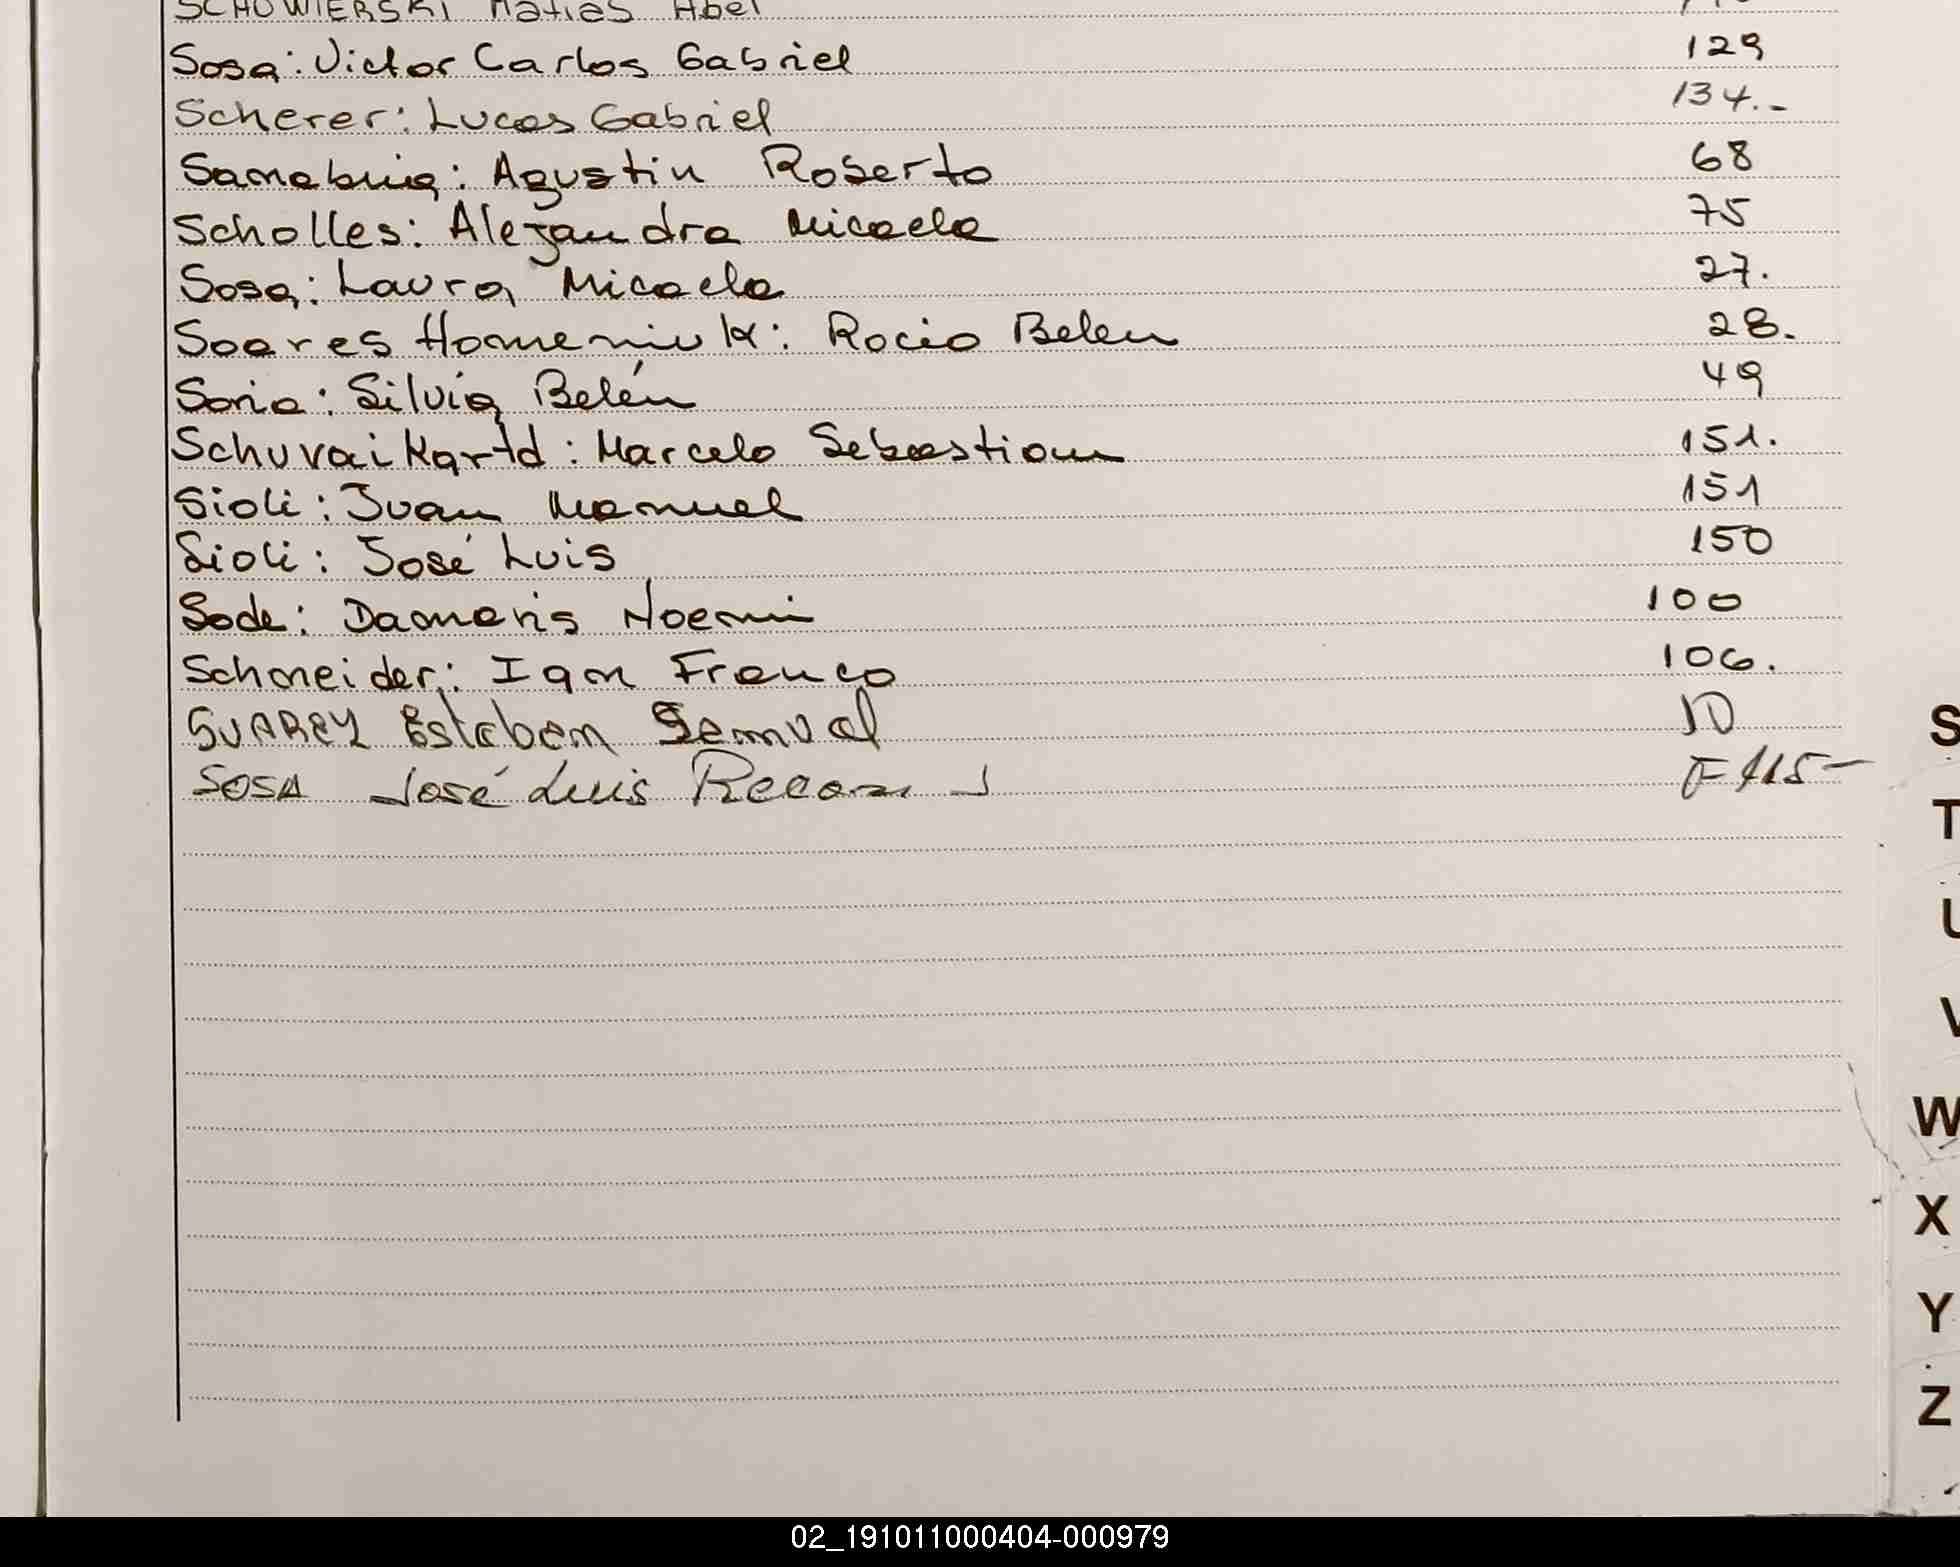 SCHOWIERSKI Matias Abel
Sosa: Victor Carlos Gabriel 129
Scherer: Lucas Gabriel 134.-
Samabria: Agustin Roberto 68
Scholles: Alejandra Micaela 75
Sosa: Laura Micaela 27.
Soares Homeniuk: Rocio Belen 28.
Soria: Silvia Belén 49
SchuvaiKartd: Marcelo Sebastian 151.
Sioli: Juan Manuel 151
Sioli: José Luis 150
Sode: Damaris Noemi 100
Schneider: Igor Franco 106.
SUAREZ Esteben 10
SOSA José Luis F 115-
S
T
U
V
W
X
Y
Z
02_191011000404-000979